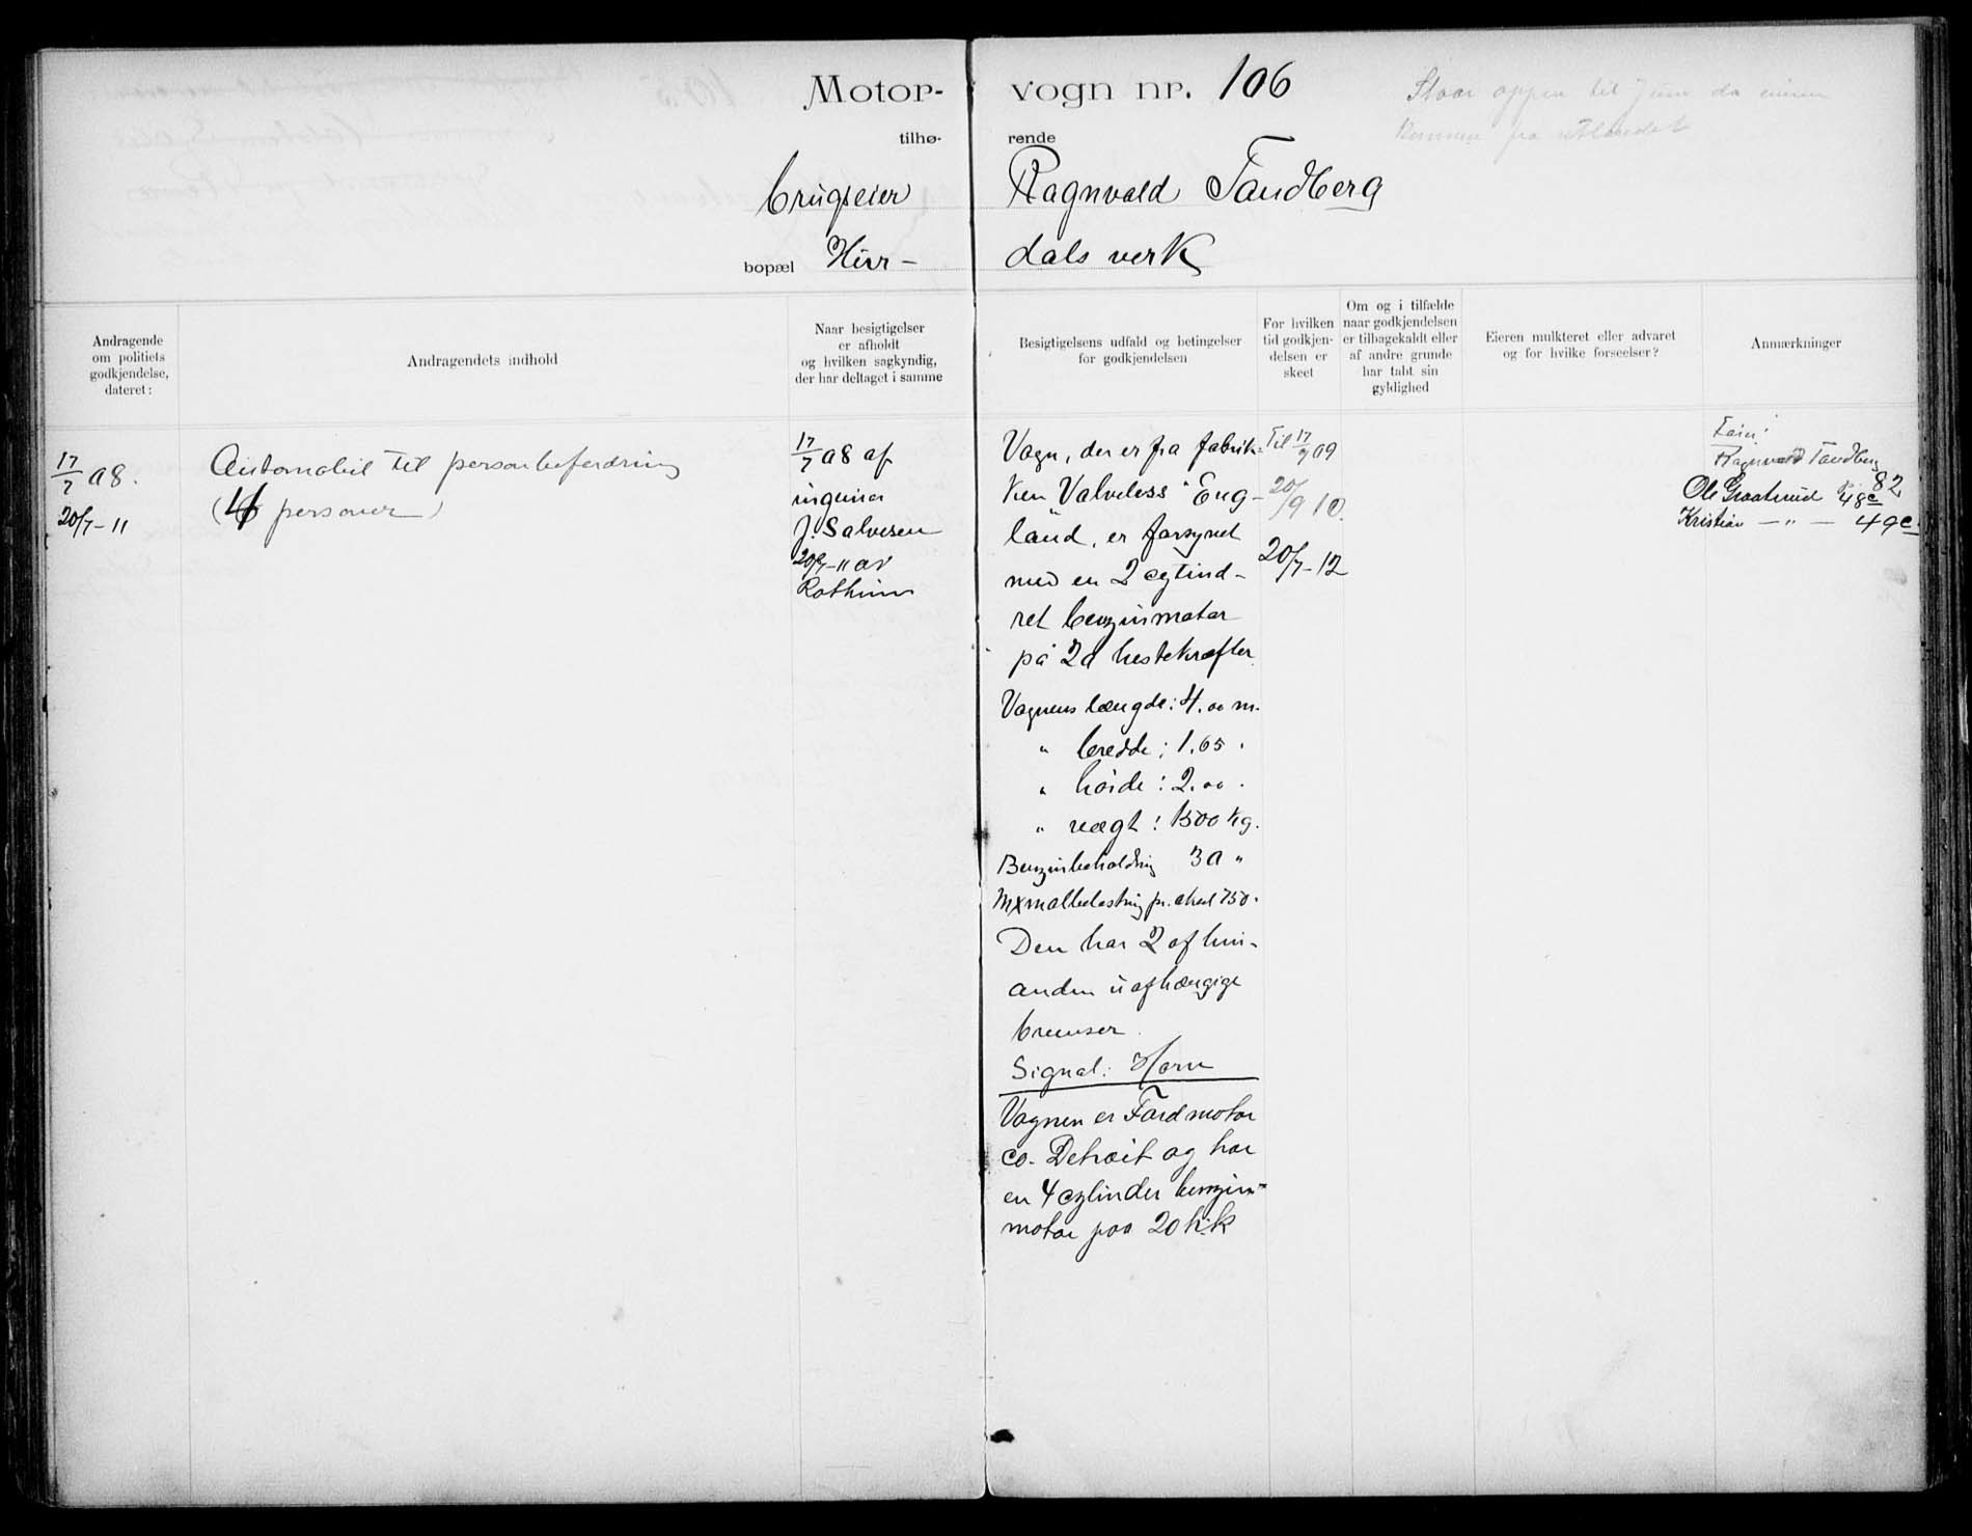 Motor- vogn nr. 106
Staar oppen til Juni da eieren
kommer fra utlandet
tilhø- rende
brugseier Ragnvald Tandberg
bopæl Hvir- dals verk
Andragende
om politiets
godkjendelse,
dateret:
Andragendets indhold
Naar besigtigelser
er afholdt
og hvilken sagkyndig,
der har deltaget i samme
Besigtigelsens udfald og betingelser
for godkjendelsen
For hvilken
tid godkjen-
delsen er
skeet
Om og i tilfælde
naar godkjendelsen
er tilbagekaldt eller
af andre grunde
har tabt sin
gyldighed
Eieren mulkteret eller advaret
og for hvilke forseelser?
Anmærkninger
17/7 08.
20/7-11
Automobil til personbefordring
(4 personer)
17/7 08 af
ingeniør
J. Salvesen
20/7-11 av
Vogn, der er fra fabrik-
ken "Valveless" Eng-
land, er forsynet
med en 2 cylind-
ret benzinmotor
på 20 hestekræfter
Vognens længde: 4.00 m.
" bredde: 1.65 "
" høide: 2.00 "
" vægt: 1500 kg.
Benzinbeholdning 30 "
Mxmalbelastning pr. aksel 750 "
Den har 2 af hin-
anden uafhængige
bremser.
Signal: Horn
Vognen er Fordmotor
co. Detroit og har
en 4 cylinder benzin-
motor paa 20 h.k
Til 17/7 09
20/9 10.
20/7-12
Fører:
Ragnvald Tandberg
82
Ole Graatrud 48c
Kristian — " — 49c